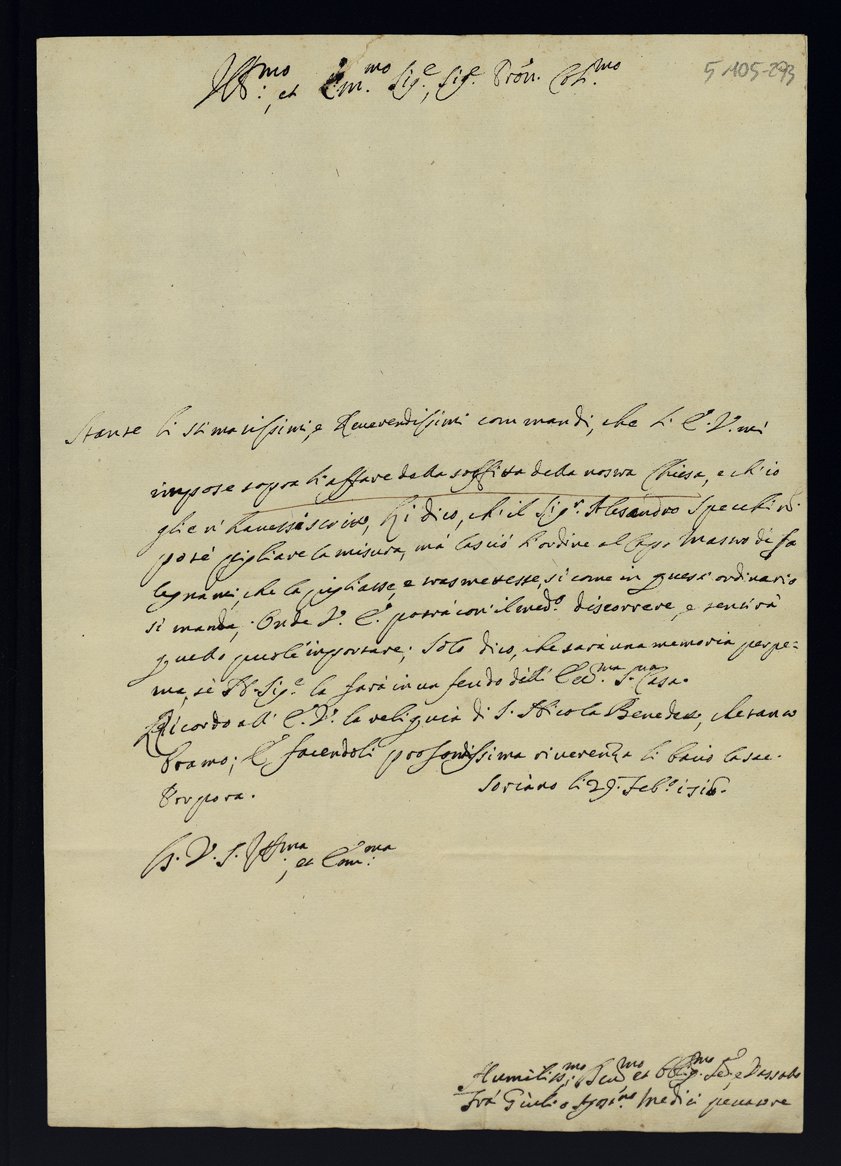 Ill:mo, et Em.mo Sig.e, Sig.e Pron. Col.mo
5 1105-293
Stante li stimatissimi, e Reverendissimi commandi, che l' E. V. mi
impose sopra l'affare della soffitta della nostra Chiesa, e ch'io
glie n' havessi scritto, li dico, ch'il Sig.r Alesandro Specchi
poté pigliare la misura, mà lasciò l'ordine al Capo Mastro di fa
legnami, che la pigliasse, e trasmettesse, si come in quest' ordinario
si manda, Onde V. E. potrà con' il med.o discorrere, e sentirà
quello puole importare; Solo dico, che sarà una memoria perpe=
tua, sè N. Sig.e la farà in un feudo dell' Ecc.ma S. Casa.
Ricordo all' E. V. la reliquia di S. Nicola Benedetto, che tanto
bramo; E facendoli profondissima riverenza li bacio la sac.
Porpora.
Soriano li 29. Feb.o 1716.
D. V. S. Ill:ma, et Em:ma
Humiliss:mo, et Oblig.mo Se.e, e Vassallo
Frà Giulio Agost.no Medici